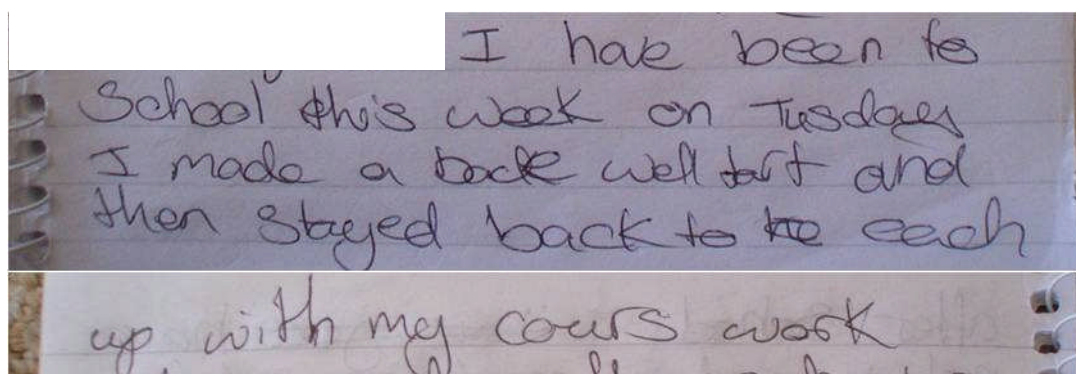 I have been to
School this week on Tusday
I made a backe well tart and
then stayed back to to each
up with my cours work